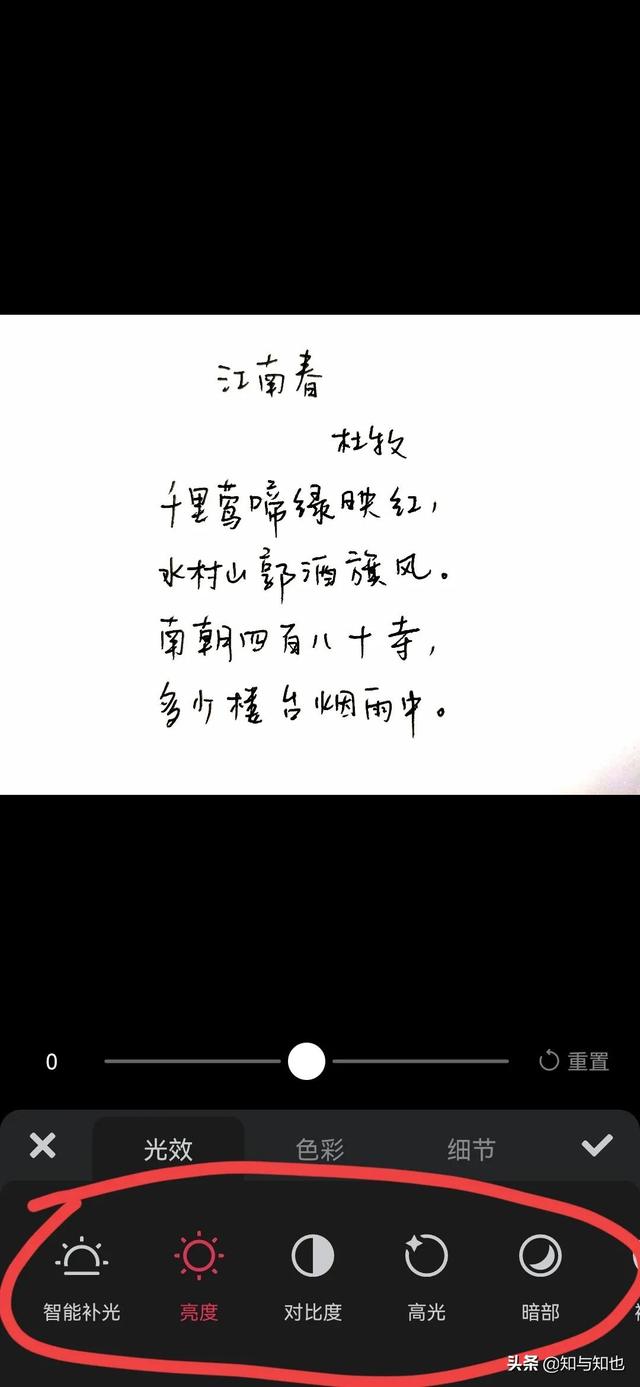 江南春
杜牧
千里莺啼绿映红，
水村山郭酒旗风。
南朝四百八十寺，
多少楼台烟雨中。
0 重置
光效 色彩 细节
智能补光 亮度 对比度 高光 暗部
头条 @知与知也